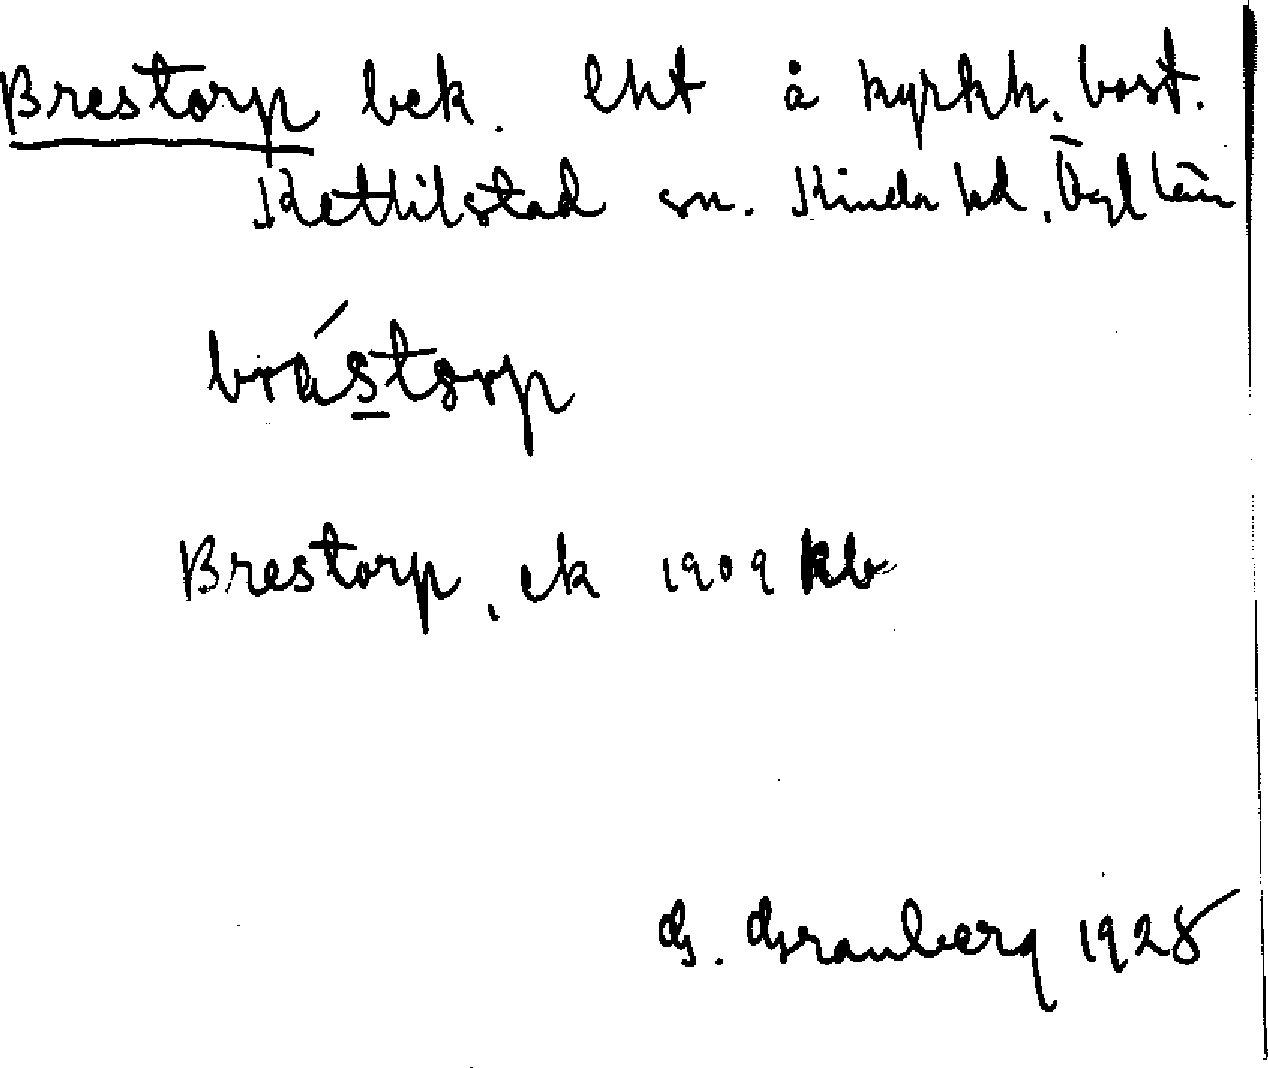 Brestorp bek. lht å kyrkh. bost.
Kettilstad sn. Kinda hd. Ögl län
brástorp
Brestorp, ek 1909 kb
G. Granberg 1928